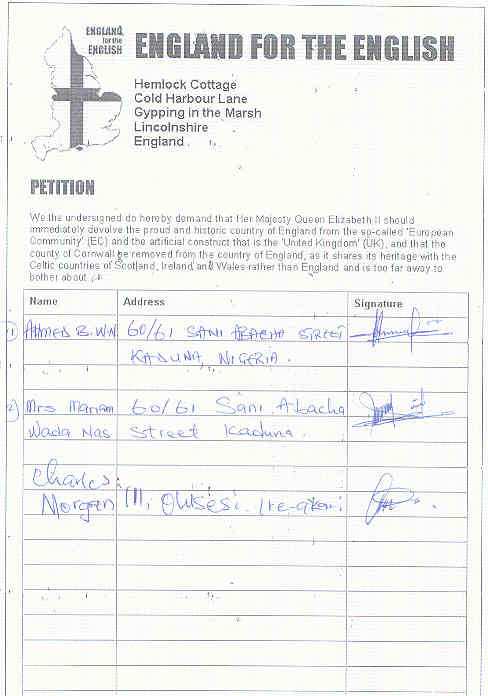 ENGLAND
for the
ENGLISH
ENGLAND FOR THE ENGLISH
Hemlock Cottage
Cold Harbour Lane
Gypping in the Marsh
Lincolnshire
England
PETITION
We the undersigned do hereby demand that Her Majesty Queen Elizabeth II should
immediately devolve the proud and historic country of England from the so-called 'European
Community' (EC) and the artificial construct that is the 'United Kingdom' (UK), and that the
county of Cornwall be removed from the country of England, as it shares its heritage with the
Celtic countries of Scotland, Ireland and Wales rather than England and is too far away to
bother about.
Name Address Signature
1) AHMED B. W.N 60/61 SANI ABACHA STREET
KADUNA, NIGERIA.
2) Mrs Mariam 60/61 Sani Abacha
Wada Nas Street Kaduna.
Charles
Morgan 111,